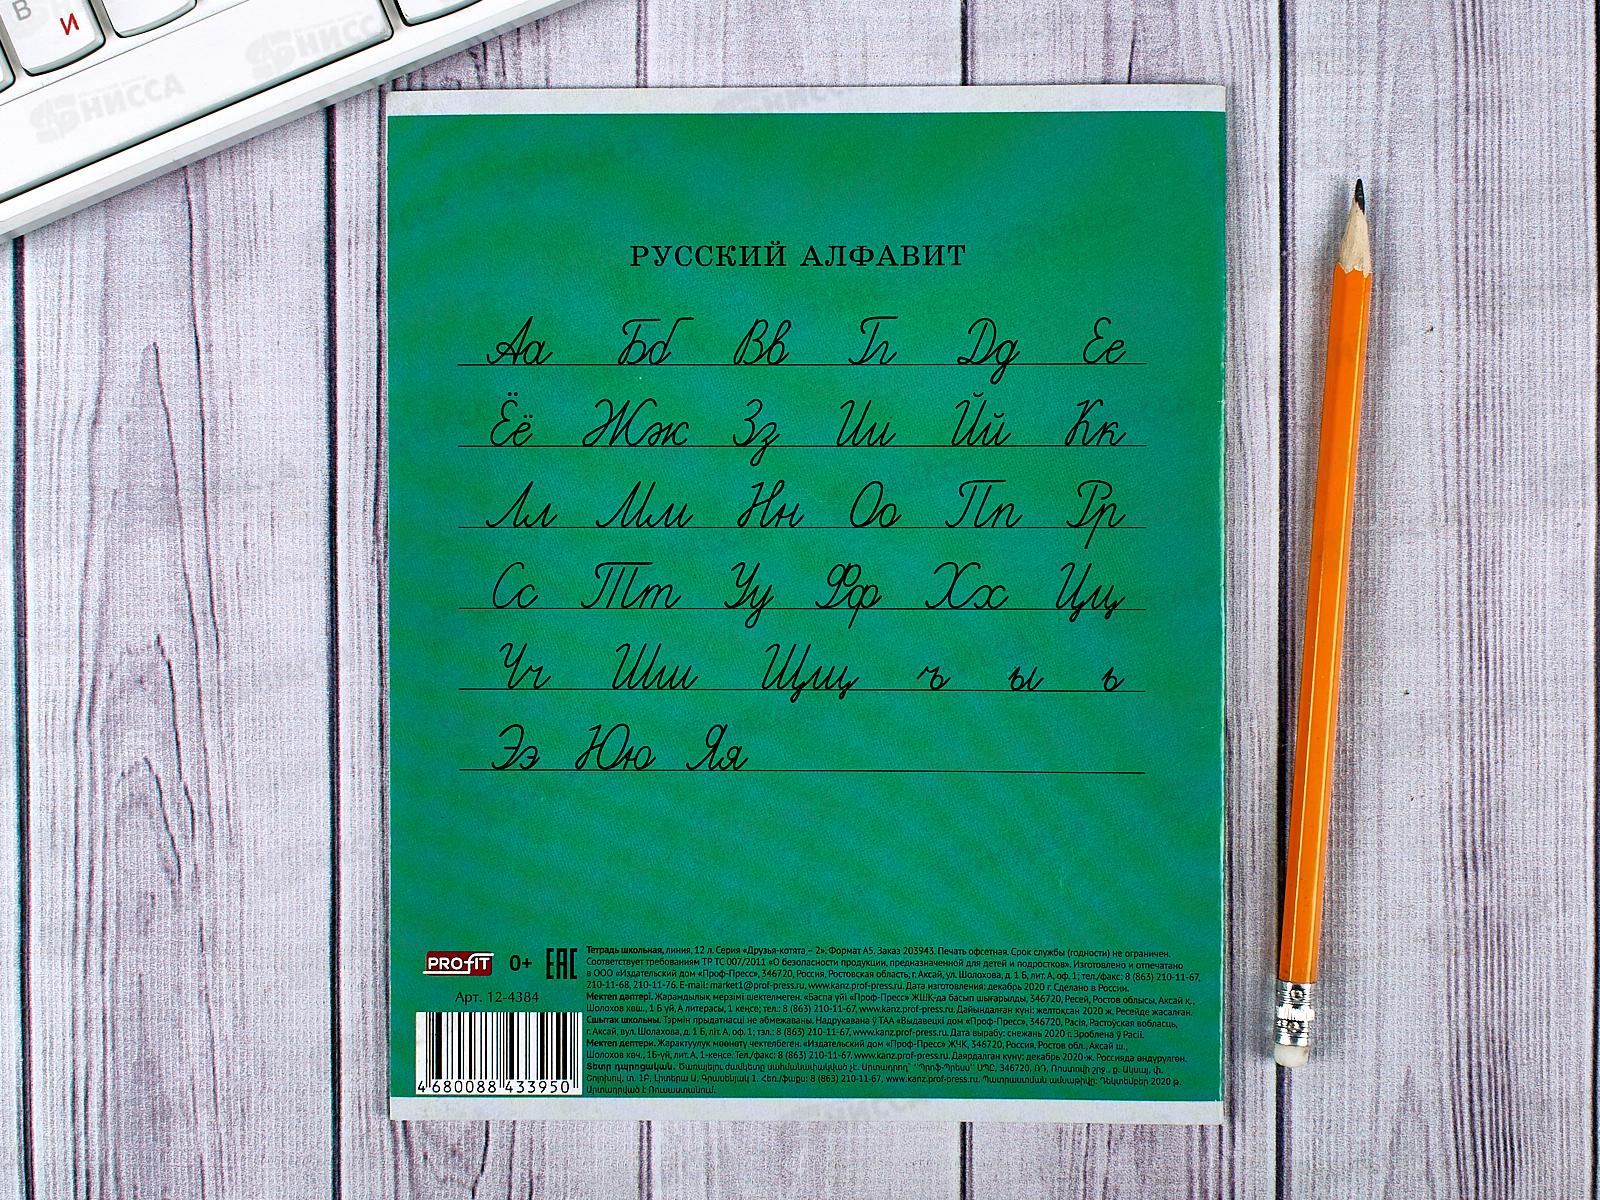 В
И
НИССА
НИССА
РУССКИЙ АЛФАВИТ
Аа Бб Вв Гг Дд Ее
Ёё Жж Зз Ии Йй Кк
Лл Мм Нн Оо Пп Рр
Сс Тт Уу Фф Хх Цц
Чч Шш Щщ ъ ы ь
Ээ Юю Яя
PROFIT 0+ EAC
Арт. 12-4384
4 680088 433950
Тетрадь школьная, линия, 12 л. Серия «Друзья-котята – 2». Формат А5. Заказ 203943. Печать офсетная. Срок службы (годности) не ограничен.
Соответствует требованиям ТР ТС 007/2011 «О безопасности продукции, предназначенной для детей и подростков». Изготовлено и отпечатано
в ООО «Издательский дом «Проф-Пресс», 346720, Россия, Ростовская область, г. Аксай, ул. Шолохова, д. 1 Б, лит. А, оф. 1; тел./факс: 8 (863) 210-11-67,
210-11-68, 210-11-76. E-mail: market1@prof-press.ru, www.kanz.prof-press.ru. Дата изготовления: декабрь 2020 г. Сделано в России.
Мектеп дәптері. Жарамдылық мерзімі шектелмеген. «Баспа үйі «Проф-Пресс» ЖШҚ-да басып шығарылды, 346720, Ресей, Ростов облысы, Аксай қ.,
Шолохов көш., 1 Б үй, А литерасы, 1 кеңсе; тел.: 8 (863) 210-11-67, www.kanz.prof-press.ru. Дайындалған күні: желтоқсан 2020 ж. Ресейде жасалған.
Сшытак школьны. Тэрмін прыдатнасці не абмежаваны. Надрукавана ў ТАА «Выдавецкі дом «Проф-Пресс», 346720, Расія, Растоўская вобласць,
г. Аксай, вул. Шолахава, д. 1 Б, літ. А, оф. 1; тэл.: 8 (863) 210-11-67, www.kanz.prof-press.ru. Дата вырабу: снежань 2020 г. Зроблена ў Расіі.
Мектеп дептери. Жарактуулук мөөнөтү чектелбеген. «Издательский дом «Проф-Пресс» ЖЧК, 346720, Россия, Ростов обл., Аксай ш.,
Шолохов көч., 1Б-үй, лит. А, 1-кеңсе. Тел./факс: 8 (863) 210-11-67, www.kanz.prof-press.ru. Даярдалган күнү: декабрь 2020-ж. Россияда өндүрүлгөн.
Տետր դպրոցական. Ծառայելու ժամկետը սահմանափակված չէ. 346720, ՌԴ, Ռոստովի շրջ., ք. Ակսայ, փ.
Շոլոխով, տ. 1Բ, Լիտերա Ա, Գրասենյակ 1. Հեռ./ֆաքս: 8 (863) 210-11-67, www.kanz.prof-press.ru. Պատրաստման ամսաթիվը: Դեկտեմբեր 2020 թ.
Արտադրված է Ռուսաստանում.